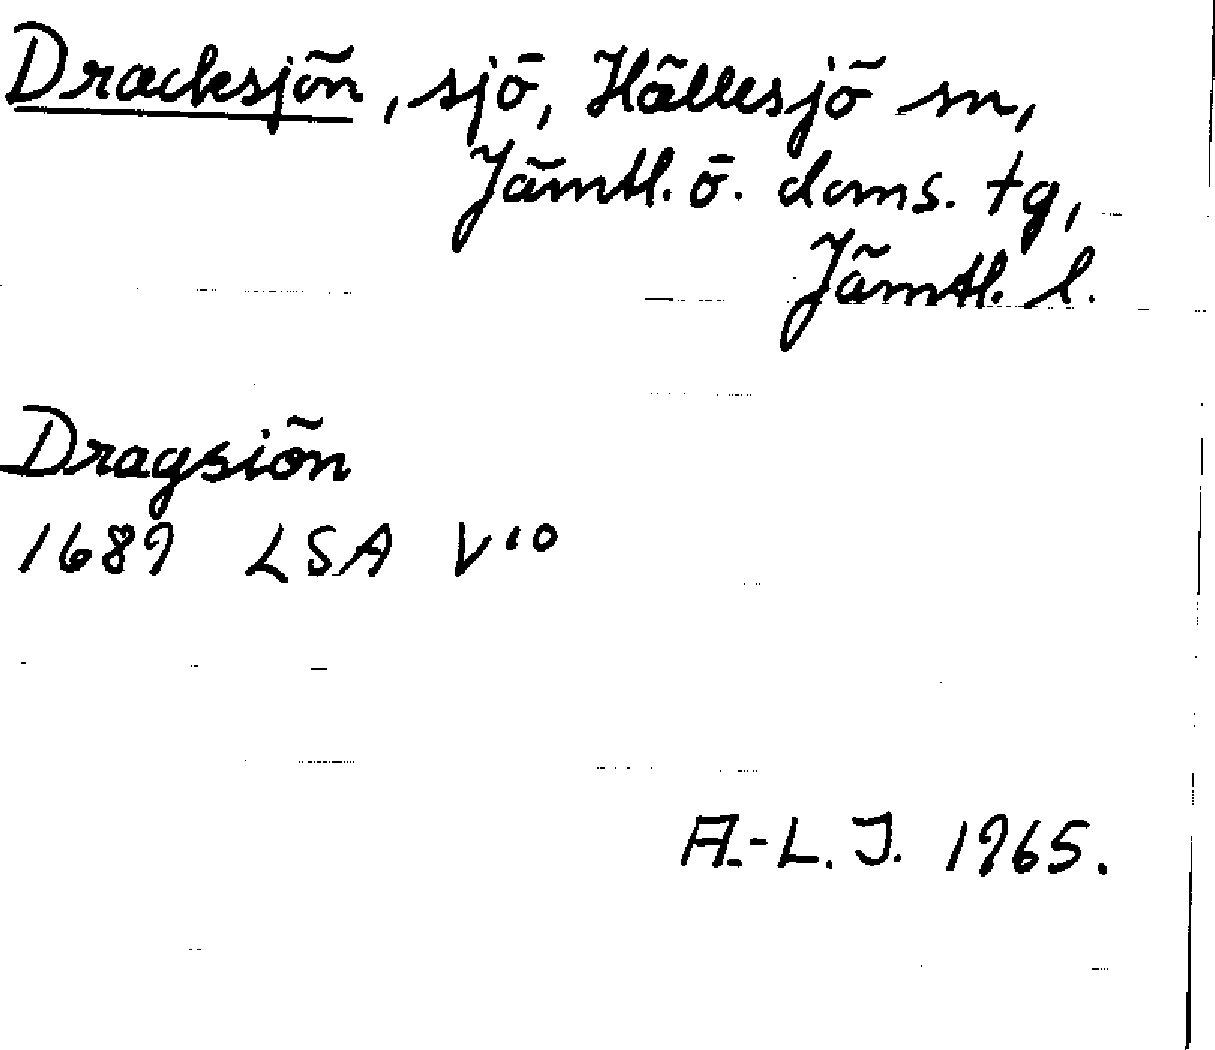 Dracksjön, sjö, Hällesjö sn,
Jämtl. ö. doms. tg,
Jämtl. l.
Dragsiön
1689 LSA V 10
A.-L. J. 1965.